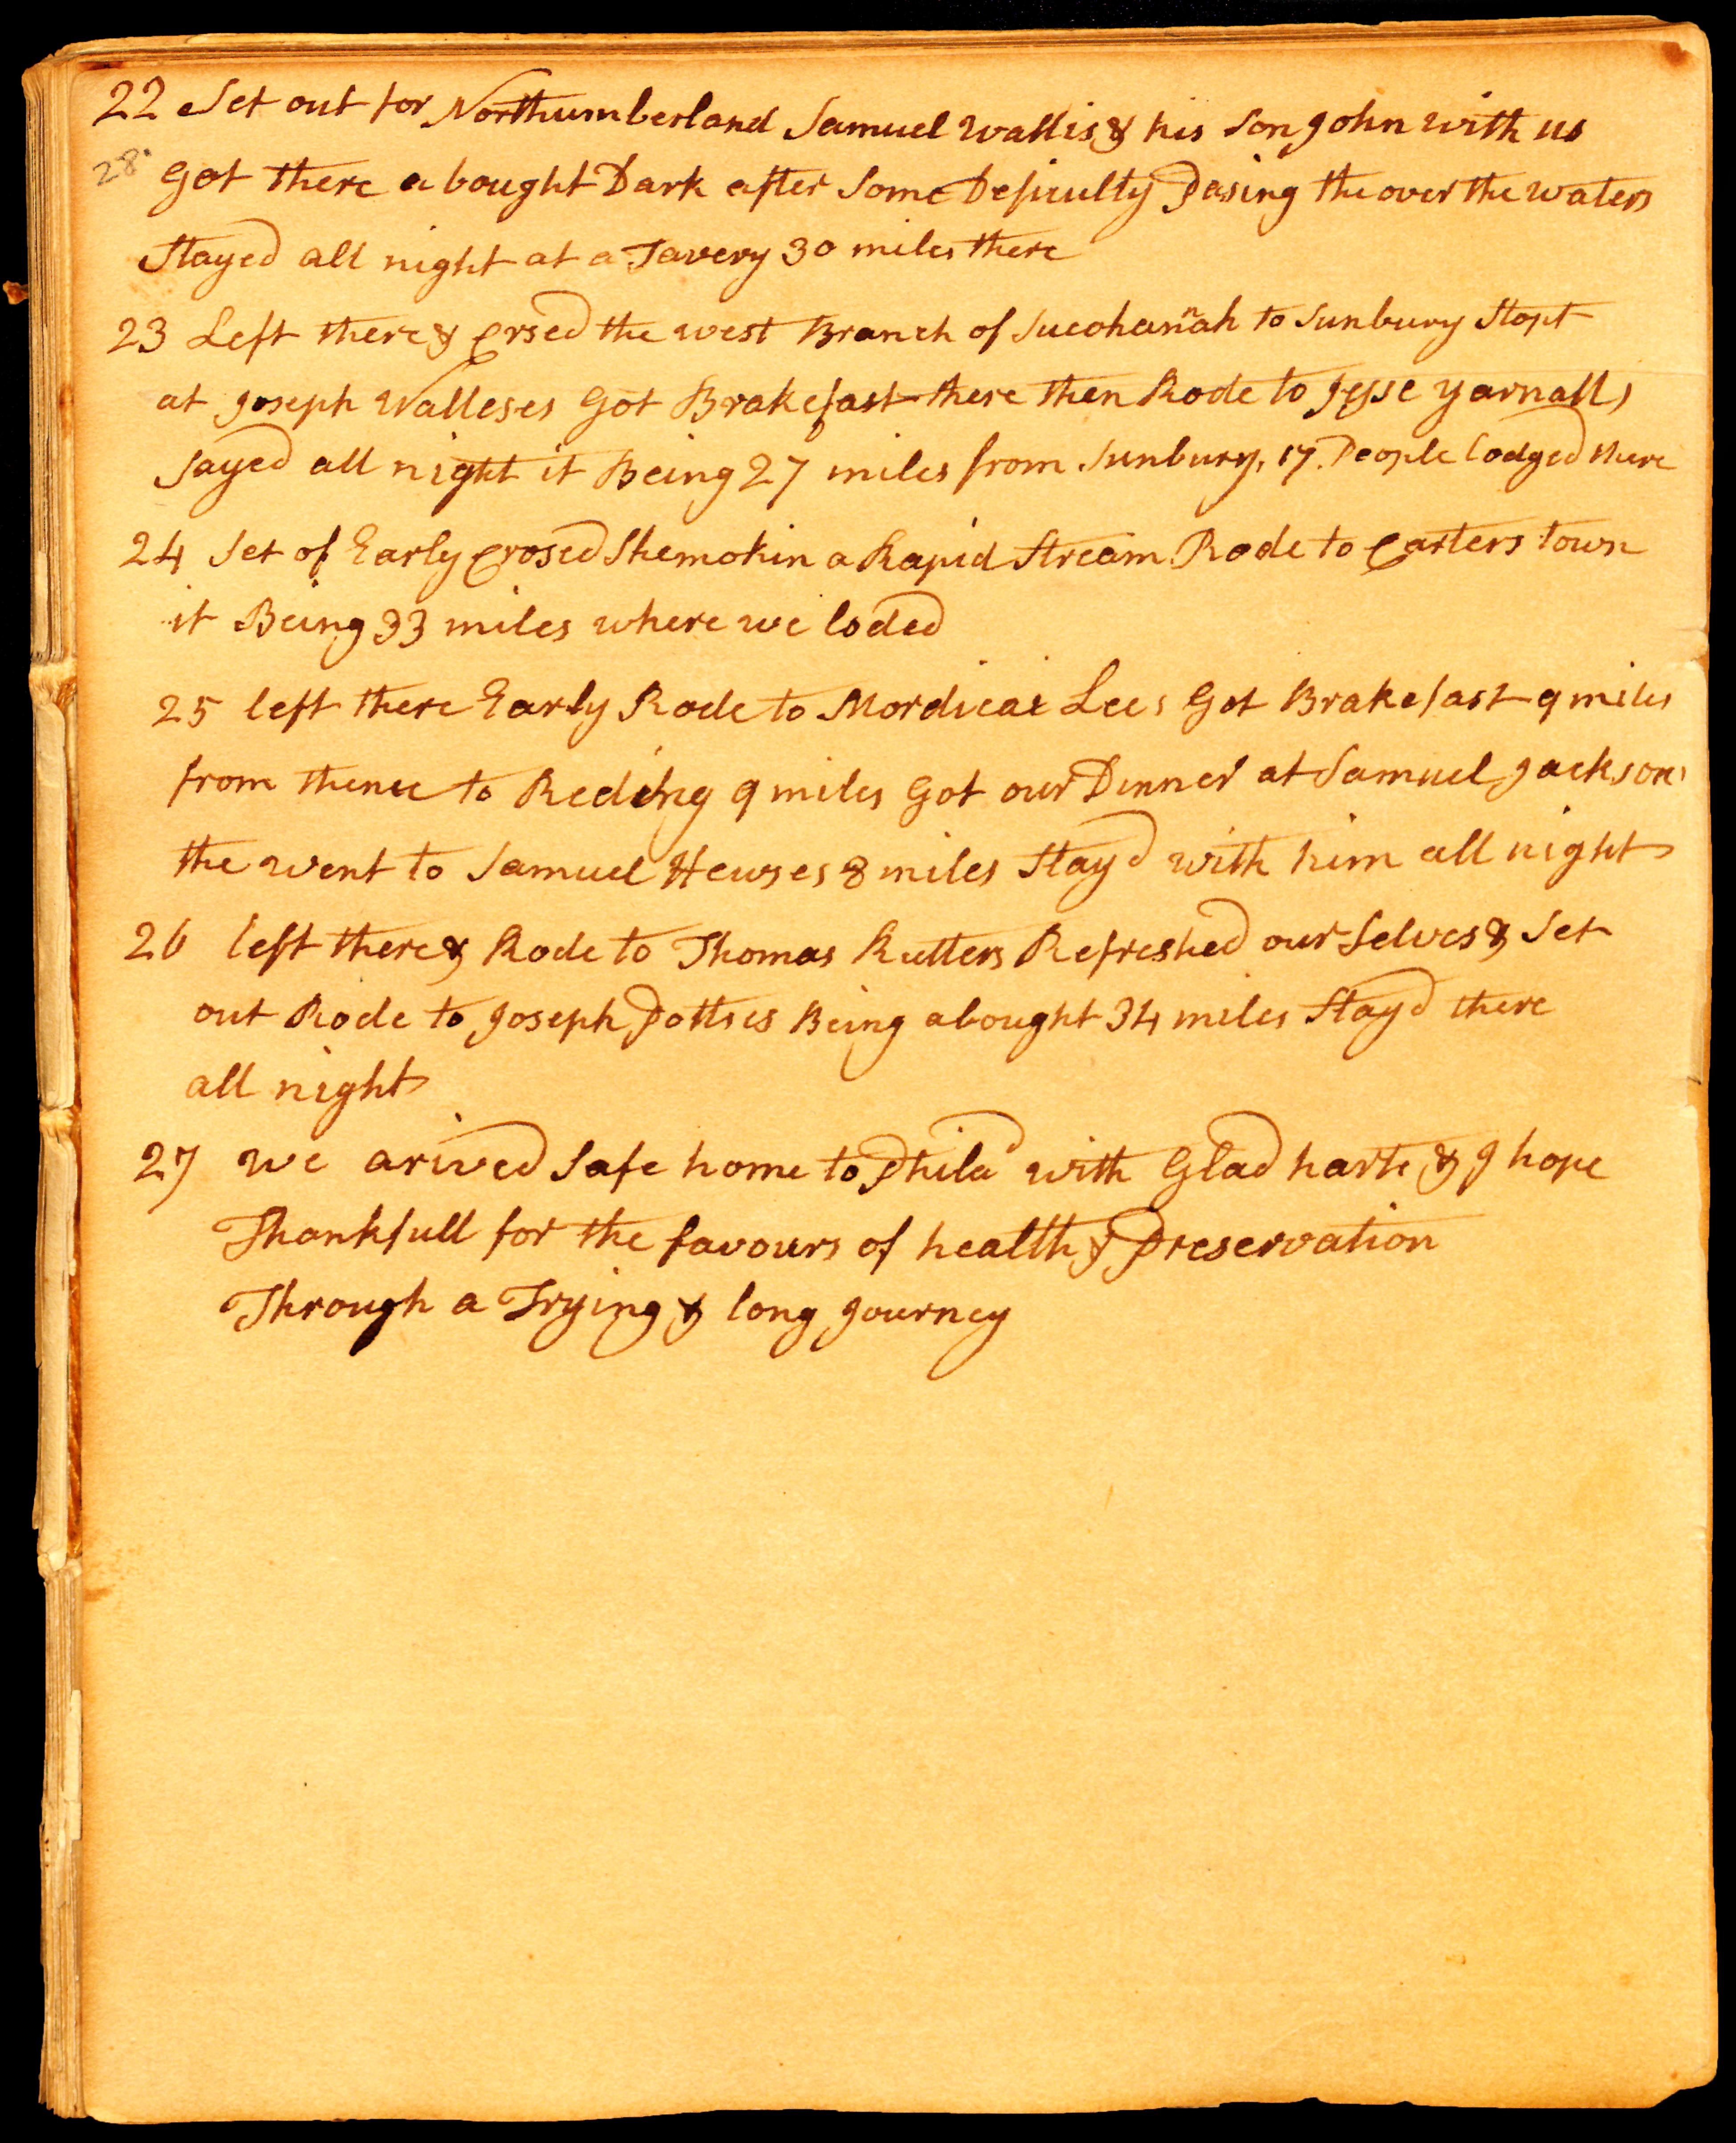 22 Set out for Northumberland Samuel Wallis & his Son John with us
28
Got there a bought Dark after Some Deficulty Pasing the over the waters
Stayed all night at a Tavery 30 miles there
23 Left there & crsed the west Branch of Sucohannah to Sunbury Stopt
at Joseph Walleses Got Brakefast there then Rode to Jesse yarnalls
Sayed all night it Being 27 miles from Sunbury, 17. People lodged there
24 Set of Early Crosed Shemokin a Rapid Stream Rode to Carters town
it Being 33 miles where we loded
25 left there Early Rode to Mordicai Lees Got Brakefast 9 miles
from thence to Reding 9 miles Got our Dinner at Samuel Jacksons
the went to Samuel Hewses 8 miles Stayd with him all night
26 left there & Rode to Thomas Rutters Refreshed our Selves & Set
out Rode to Joseph Pottses Being abought 34 miles Stayd there
all night
27 we arived Safe home to Philad with Glad harts & J hope
Thankfull for the favours of health & Preservation
Through a Trying & long Journey